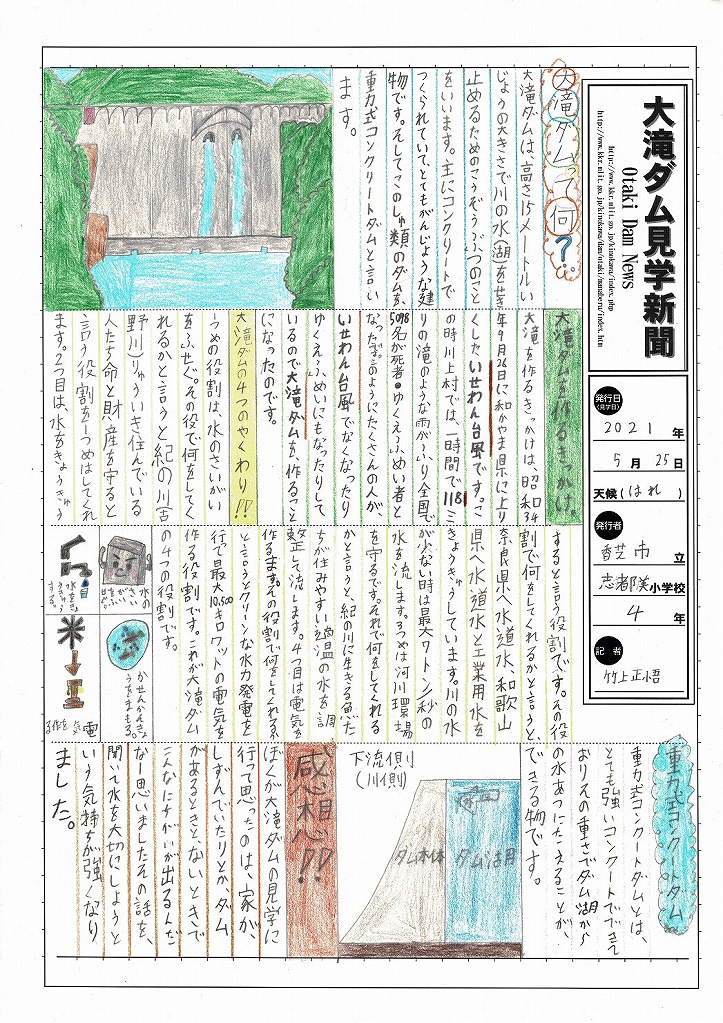 大滝ダム見学新聞
Otaki Dam News
http://www.kkr.mlit.go.jp/kinokawa/index.php
http://www.kkr.mlit.go.jp/kinokawa/dam/otaki/manaberu/index.htm
発行日
(月了日)
2021年
5月25日
天候(はれ)
発行者
香芝市立
志都美小学校
4年
記者
竹上正悟
大滝ダムって何?
大滝ダムは、高さ15メートルい
じょうの大きさで川の水(湖)をせき
止めるためのこうぞうぶつのこと
をいいます。主にコンクリートで
つくられていて、とてもがんじょうな建
物です。そしてこのしゅ類のダムを、
重力式コンクリートダムと言い
ます。
大滝ダムを作るきっかけ。
大滝を作るきっかけは、昭和34
年9月26日に和かやま県に上り
くしたいせわん台風です。こ
の時川上村では、一時間で118ミ
リの滝のような雨がふり全国で
5098名が死者・ゆくえふめい者と
なった。このようにたくさんの人が、
いせわん台風でなくなったり
ゆくえふめいにもなったりして
いるので大滝ダムを、作ること
になったのです。
大滝ダムの4つのやくわり!!
一つめの役割は、水のさいがい
をふせぐ。その役で何をしてく
れるかと言うと紀の川(吉
野川)りゅういき住んでいる
人たち命と財産を守ると
言う役割を一つめはしてくれ
ます。2つ目は、水をきょうきゅう
すると言う役割です。その役
割で何をしてくれるかと言うと、
奈良県へ水道水、和歌山
県へ水道水と工業用水を
きょうきゅうしています。川の水
が少ない時は最大7トン/秒の
水を流します。3つめは河川環境
を守るです。それで何をしてくれる
かと言うと、紀の川に生きる魚た
ちが住みやすい適温の水を調
整して流します。4つ目は電気を
作るます。その役割で何をしてくれるか
と言うとクリーンな水力発電を
行って最大10,500キロワットの電気を
作る役割です。これが大滝ダム
の4つの役割です。
水のさいがいをふせぐ。
水をきょうきゅうする。
かせんかんきょうをまもる。
電気を作る
重力式コンクリートダム
重力式コンクリートダムとは、
とても強いコンクートでできて
おりその重さでダム湖から
の水あつにたえることが、
できる物です。
下流側
(川側)
ダム本体
ダム湖
感想!!
ぼくが大滝ダムの見学に
行って思ったのは、家が、
しずんでいたりとか、ダム
があるときと、ないときで
こんなにちがいが出るんだ
なーと思いましたその話を、
聞いて水を大切にしようと
いう気持ちが強くなり
ました。